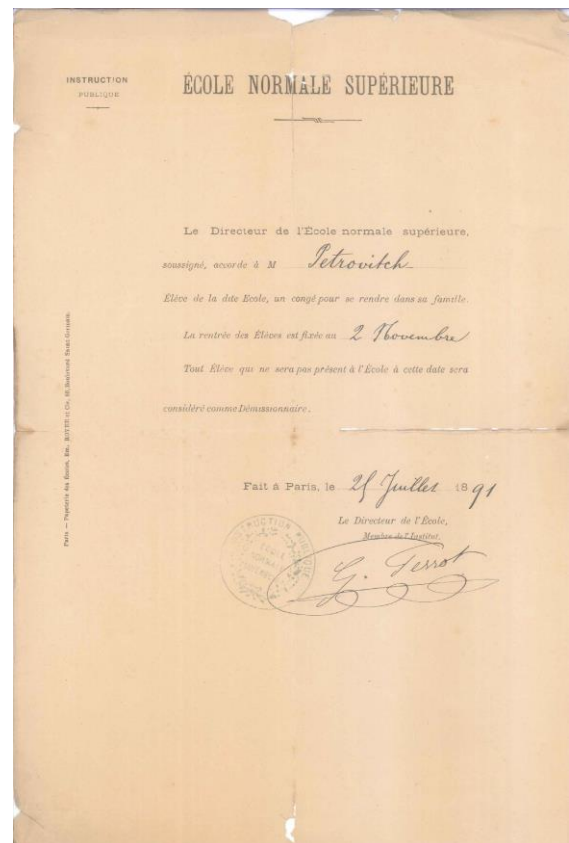 INSTRUCTION
PUBLIQUE
ÉCOLE NORMALE SUPÉRIEURE
Le Directeur de l'École normale supérieure,
soussigné, accorde à M Petrovitch
Élève de la dite Ecole, un congé pour se rendre dans sa famille.
La rentrée des Élèves est fixée au 2 Novembre
Tout Élève qui ne sera pas présent à l'École à cette date sera
considéré comme Démissionnaire.
Fait à Paris, le 25 Juillet 1891
Le Directeur de l'École,
Membre de l'Institut.
G. Perrot
INSTRUCTION PUBLIQUE
Paris — Papeterie des Écoles,